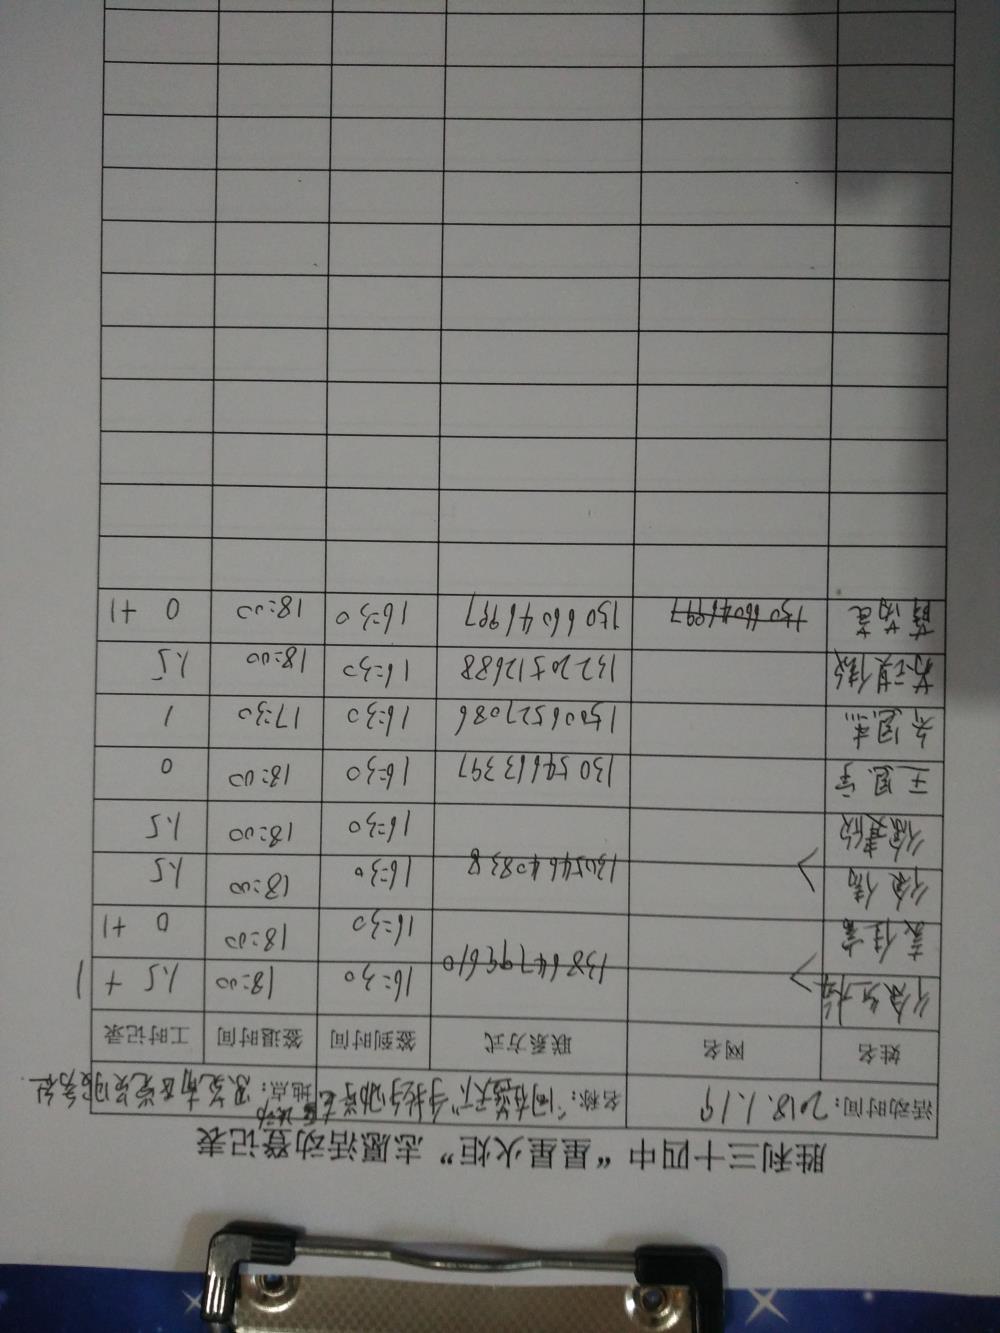 胜利三十四中“星星火炬”志愿活动登记表
活动时间：2018.1.19 名称：“问卷益天下”手拉手助学志愿活动 地点：
姓名 网名 联系方式 签到时间 签退时间 工时记录
13864799610 16:30 18:00 1.5 +1
16:30 18:00 0 +1
徐倩 13054640838 16:30 18:00 1.5
16:30 18:00 1.5
王恩宇 13054613397 16:30 18:00 0
15006527086 16:30 17:30 1
13220512688 16:30 18:00 1.5
15066046997 15066046997 16:30 18:00 0 +1